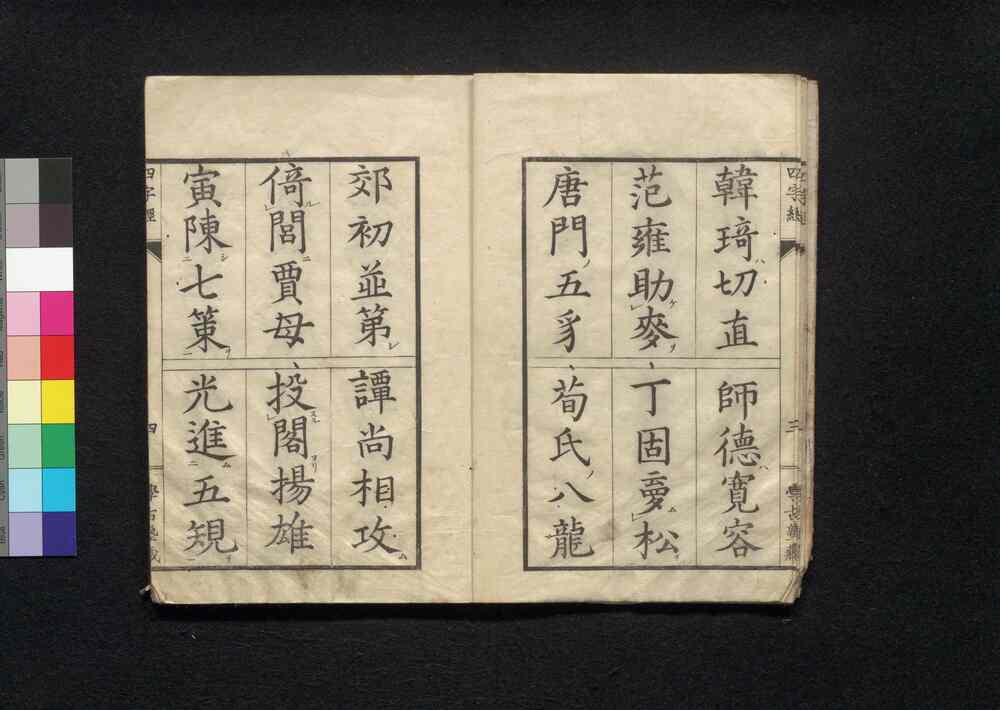 四字經
韓琦切直
師德寬容
范雍助麥
丁固夢松
唐門五豸
荀氏八龍
三
郊初並第
譚尚相攻
倚閭賈母
投閣揚雄
寅陳七策
光進五規
四字經
四